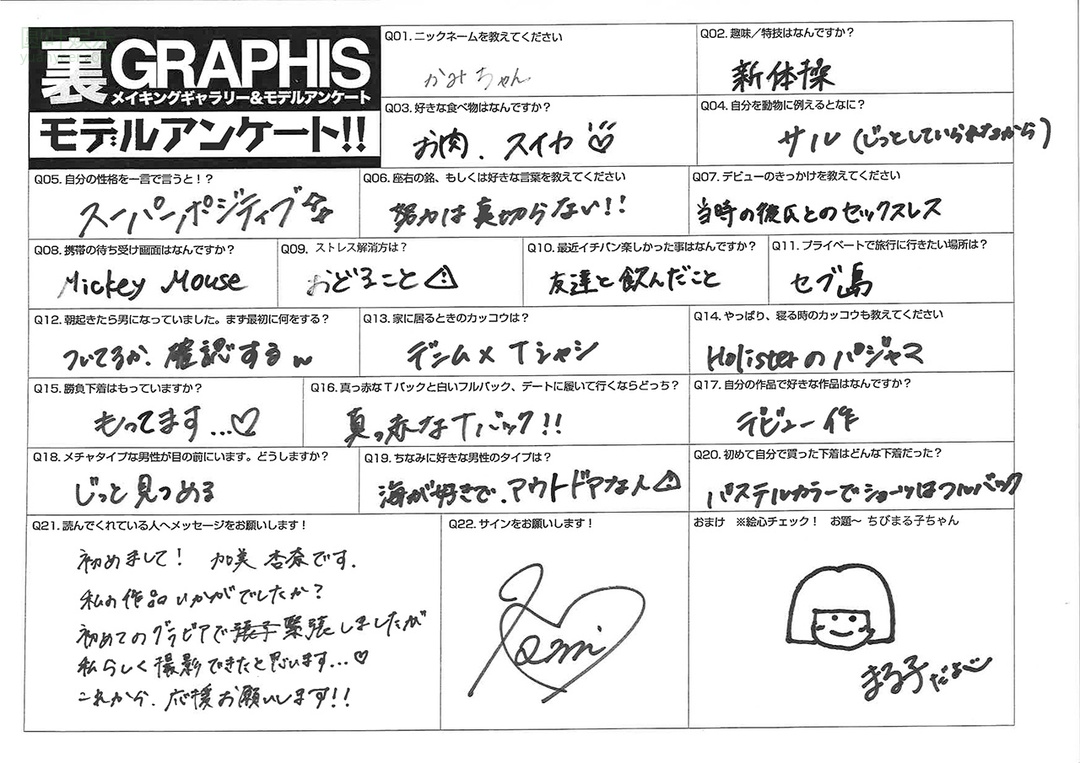 裏GRAPHIS
メイキングギャラリー&モデルアンケート
モデルアンケート!!
Q01.ニックネームを教えてください
かみちゃん
Q02.趣味／特技はなんですか？
新体操
Q03.好きな食べ物はなんですか？
お肉、スイカ
Q04.自分を動物に例えるとなに？
サル(じっとしていられないから)
Q05.自分の性格を一言で言うと！？
スーパーポジティブ
Q06.座右の銘、もしくは好きな言葉を教えてください
努力は裏切らない!!
Q07.デビューのきっかけを教えてください
当時の彼氏とのセックスレス
Q08.携帯の待ち受け画面はなんですか？
Mickey Mouse
Q09.ストレス解消方は？
おどること
Q10.最近イチバン楽しかった事はなんですか？
友達と飲んだこと
Q11.プライベートで旅行に行きたい場所は？
セブ島
Q12.朝起きたら男になっていました。まず最初に何をする？
ついてるか、確認するw
Q13.家に居るときのカッコウは？
デニム×Tシャツ
Q14.やっぱり、寝る時のカッコウも教えてください
Holisterのパジャマ
Q15.勝負下着はもっていますか？
もってます...♡
Q16.真っ赤なTバックと白いフルバック、デートに履いて行くならどっち？
真っ赤なTバック!!
Q17.自分の作品で好きな作品はなんですか？
デビュー作
Q18.メチャタイプな男性が目の前にいます。どうしますか？
じっと見つめる
Q19.ちなみに好きな男性のタイプは？
海が好きで、アウトドアな人
Q20.初めて自分で買った下着はどんな下着だった？
パステルカラーでショーツはフルバック
Q21.読んでくれている人へメッセージをお願いします！
初めまして! 加美杏奈です。
私の作品いかがでしたか?
初めてのグラビアで調子緊張しましたが
私らしく撮影できたと思います...♡
これから、応援お願いします!!
Q22.サインをお願いします！
Kami
おまけ ※絵心チェック！ お題～ ちびまる子ちゃん
まる子だよ